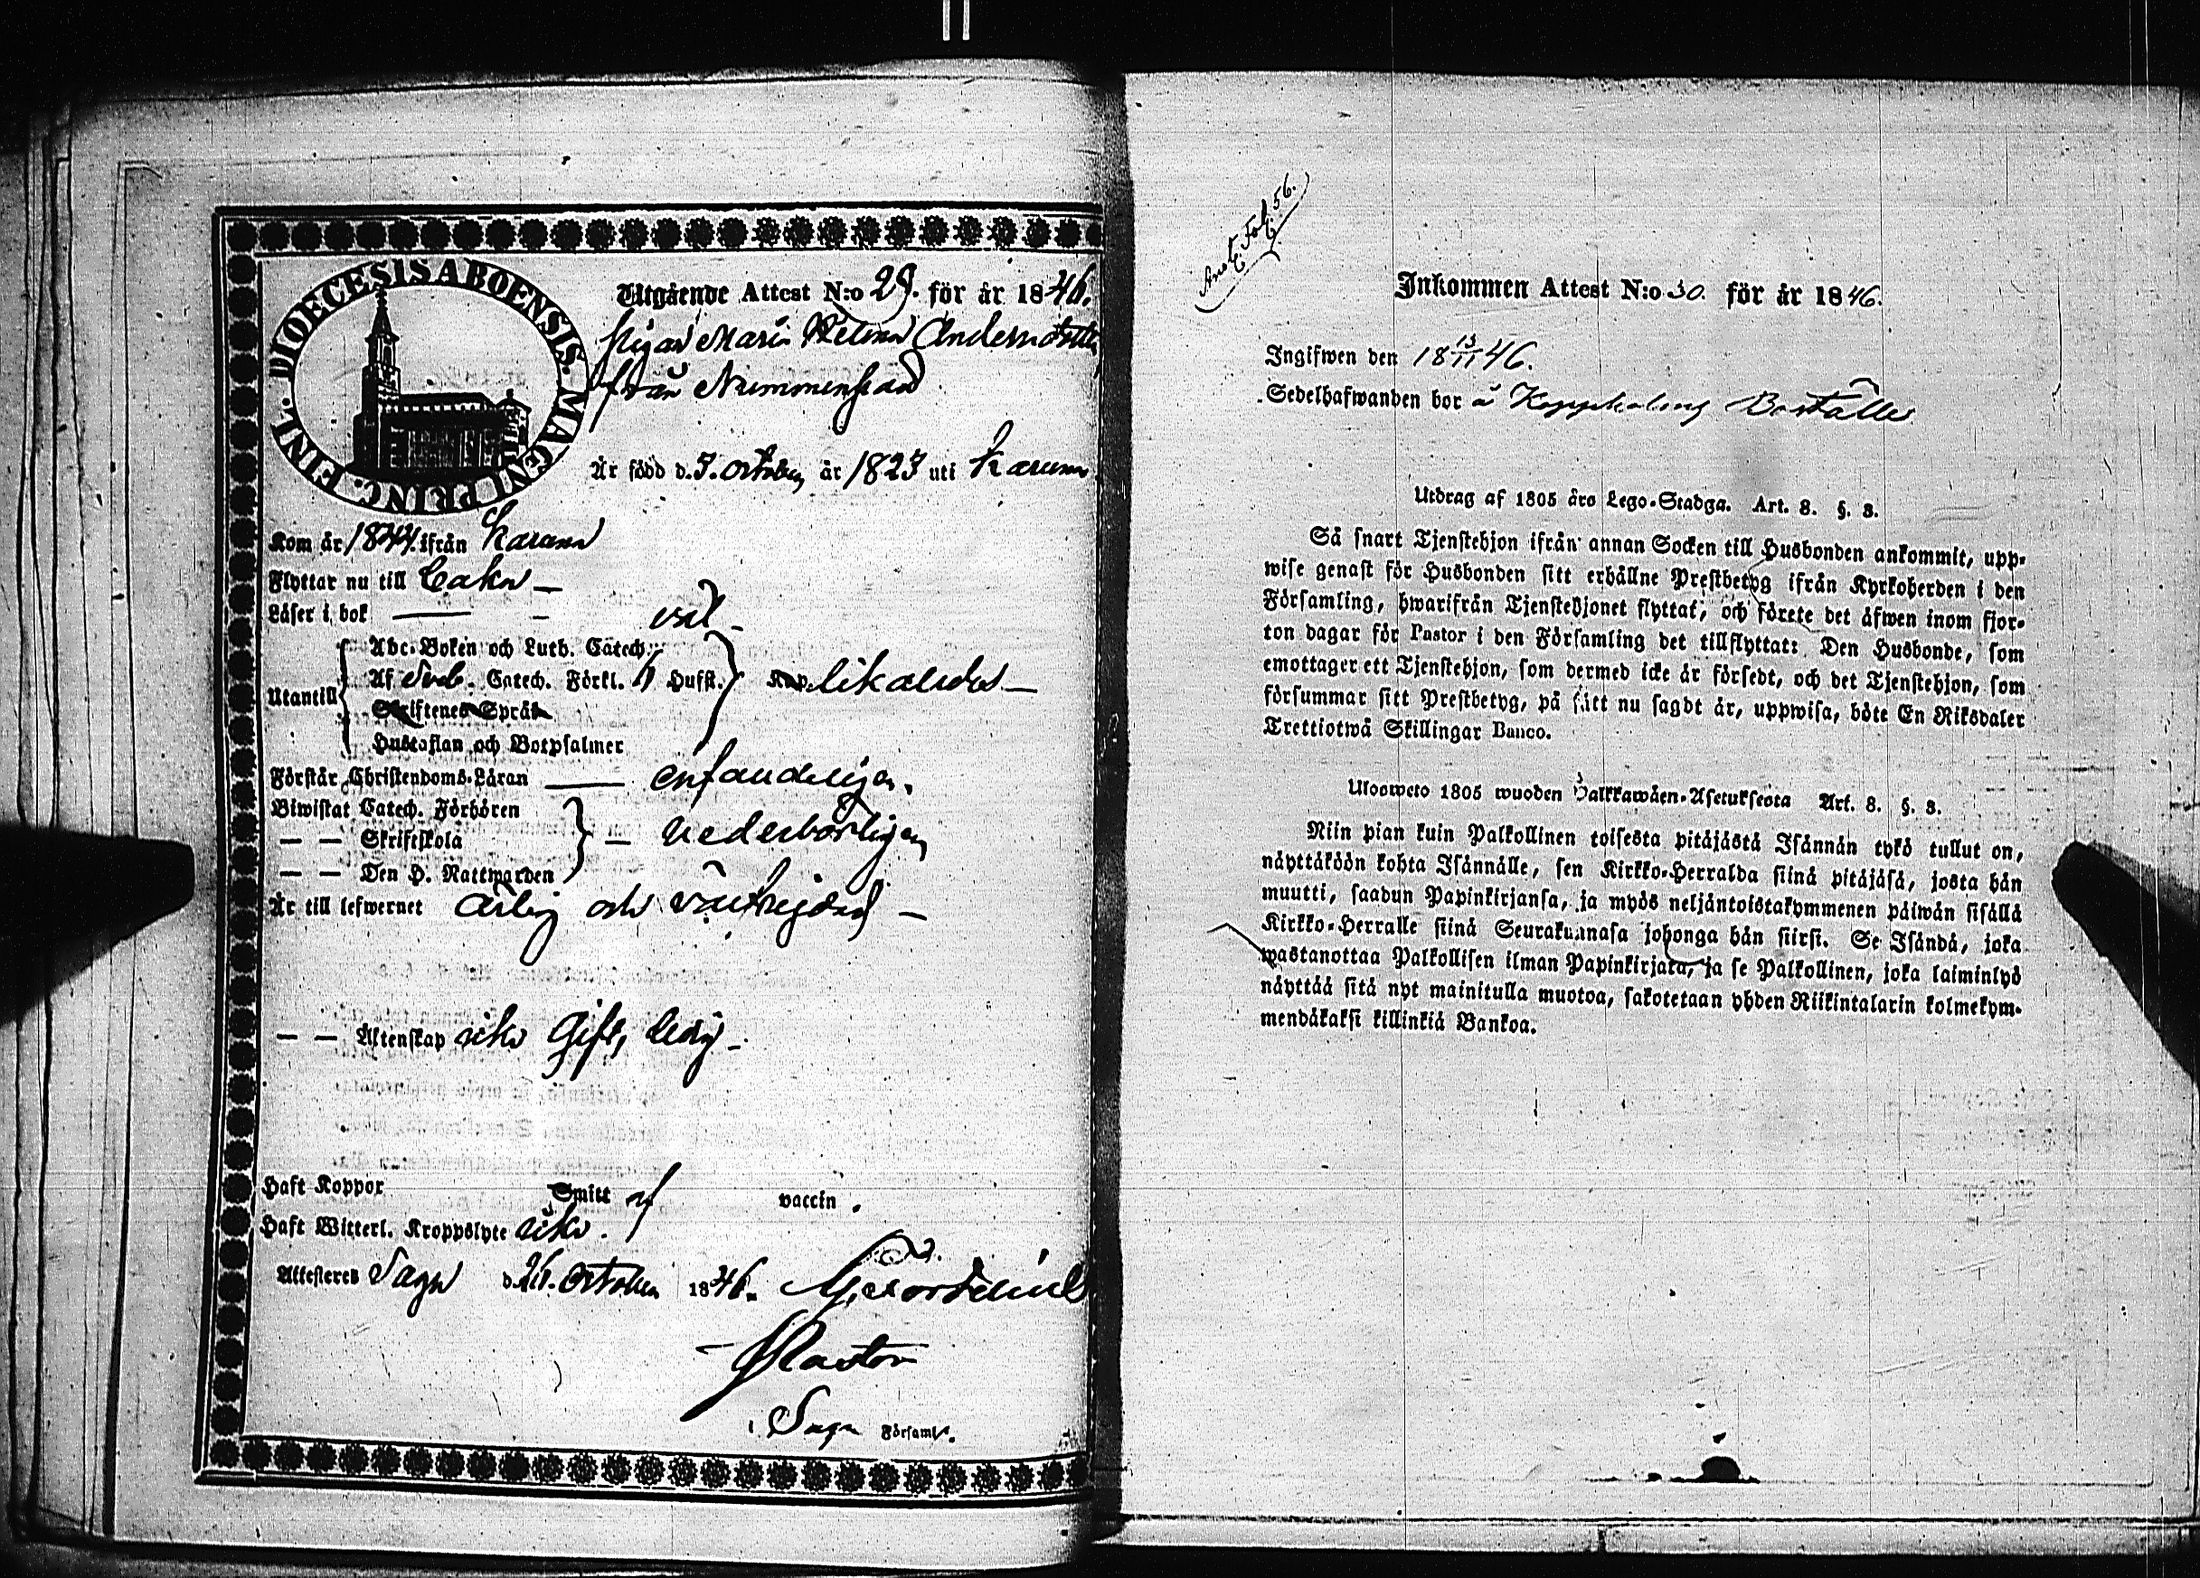 DIOECESIS ABOENSIS. MAGNI PRINC. FINL.
Utgående Attest N:o 29. för år 1846.
Pigan Maria Andersdotter
från
Är född d. 3. October år 1823 uti Karuna
Kom år 1844. ifrån Karuna
Flyttar nu till
Läser i bok — väl —
Utantill
Abc-Boken och Luth. Catech.
Af Sveb. Catech. Förkl. Hufst. Kap. likaledes —
Skriftenes Språk
Hustaflan och Botpsalmer
Förstår Christendoms-Läran — enfaldeligen.
Biwistat Catech. Förhören
— — Skriftskola — vederbörligen
— — Den H. Nattwarden
Är till lefwernet ärlig och välfrejdad —
— — Äktenskap icke Gift, ledig —
Haft Koppor Smitt af vaccin.
Haft Witterl. Kroppslyte icke.
Attesteres Sagu d. 26. October 1846.
Pastor
i Sagu Församl.
Anot. Fol. 56.
Inkommen Attest N:o 30. för år 1846.
Ingifwen den 18 13/11 46.
Sedelhafwanden bor å Boställe
Utdrag af 1805 års Lego-Stadga. Art. 8. §. 8.
Så snart Tjenstehjon ifrån annan Socken till Husbonden ankommit, upp-
wise genast för Husbonden sitt erhållne Prestbetyg ifrån Kyrkoherden i den
Församling, hwarifrån Tjenstehjonet flyttat, och förete det äfwen inom fjor-
ton dagar för Pastor i den Församling det tillflyttat: Den Husbonde, som
emottager ett Tjenstehjon, som dermed icke är försedt, och det Tjenstehjon, som
försummar sitt Prestbetyg, på sätt nu sagdt är, uppwisa, böte En Riksdaler
Trettiotwå Skillingar Banco.
Ulosweto 1805 wuoden Palkkawäen-Asetuksesta Art. 8. §. 8.
Niin pian kuin Palkollinen toisesta pitäjästä Isännän tykö tullut on,
näyttäköön kohta Isännälle, sen Kirkko-Herralda siinä pitäjäsä, josta hän
muutti, saadun Papinkirjansa, ja myös neljäntoistakymmenen päiwän sisällä
Kirkko-Herralle siinä Seurakunnasa johonga hän siirsi. Se Isändä, joka
wastanottaa Palkollisen ilman Papinkirjata, ja se Palkollinen, joka laiminlyö
näyttää sitä nyt mainitulla muotoa, sakotetaan yhden Riikintalarin kolmekym-
mendäkaksi killinkiä Bankoa.